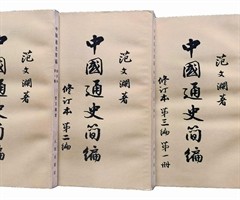 范文澜著
中國通史简编
范文澜著
中國通史简编
修订本 第二编
范文澜著
中國通史简编
修订本 第三编 第一册